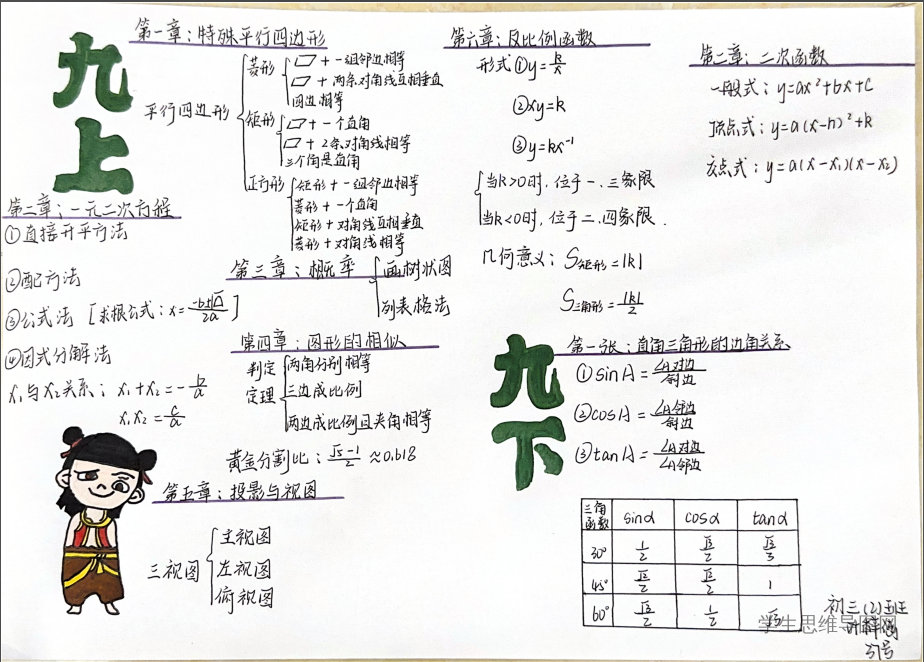 九上
第一章：特殊平行四边形
平行四边形
菱形
▱ + 一组邻边相等
▱ + 两条对角线互相垂直
四边相等
矩形
▱ + 一个直角
▱ + 2条对角线相等
三个角是直角
正方形
矩形 + 一组邻边相等
菱形 + 一个直角
矩形 + 对角线互相垂直
菱形 + 对角线相等
第二章：一元二次方程
①直接开平方法
②配方法
③公式法 [求根公式：x=(-b±√Δ)/2a]
④因式分解法
x₁与x₂关系：x₁+x₂=-b/a
x₁x₂=c/a
第三章：概率
画树状图
列表格法
第四章：图形的相似
判定定理
两角分别相等
三边成比例
两边成比例且夹角相等
黄金分割比：(√5-1)/2≈0.618
第五章：投影与视图
三视图
主视图
左视图
俯视图
第六章：反比例函数
形式①y=k/x
②xy=k
③y=kx⁻¹
当k>0时，位于一、三象限
当k<0时，位于二、四象限.
几何意义：S矩形=|k|
S三角形=|k|/2
九下
第一张：直角三角形的边角关系
①sinA=∠A对边/斜边
②cosA=∠A邻边/斜边
③tanA=∠A对边/∠A邻边
三角函数 sinα cosα tanα
30° 1/2 √3/2 √3/3
45° √2/2 √2/2 1
60° √3/2 1/2 √3
第二章：二次函数
一般式：y=ax²+bx+c
顶点式：y=a(x-h)²+k
交点式：y=a(x-x₁)(x-x₂)
初三(2)班
学生思维导图网
号